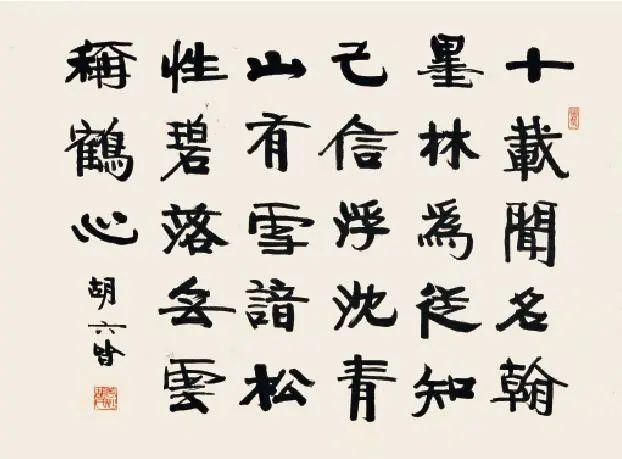 十載聞名翰
墨林爲從知
己信浮沈青
山有雪諳松
性碧落無雲
稱鶴心
胡六皆